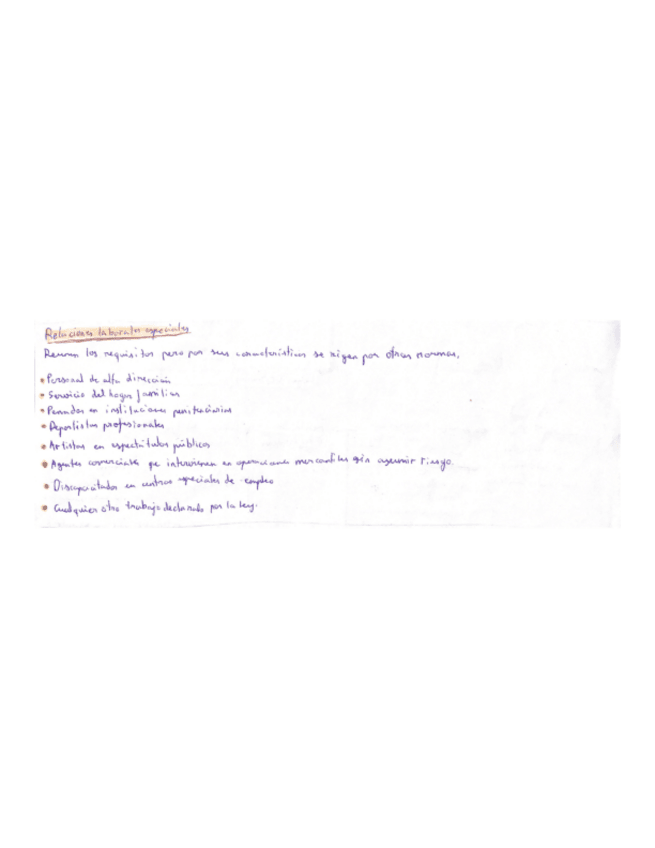 Relaciones laborales especiales
Reunen los requisitos pero por sus características se rigen por otras normas.
• Personal de alta dirección
• Servicio del hogar familiar
• Penados en instituciones penitenciarias
• Deportistas profesionales
• Artistas en espectáculos públicos
• Agentes comerciales que intervienen en operaciones mercantiles sin asumir riesgo.
• Discapacitados en centros especiales de empleo
• Cualquier otro trabajo declarado por la ley.